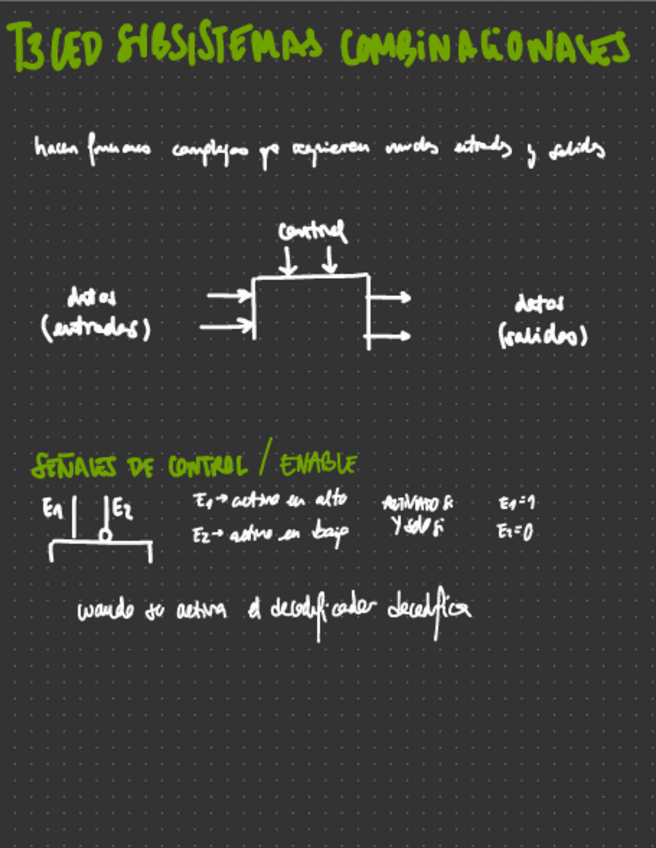 T3 CED SIBSISTEMAS COMBINACIONALES
hacen funciones complejas qe requieren muchas entradas y salidas
control
datos
(entradas)
datos
(salidas)
SEÑALES DE CONTROL / ENABLE
E1 E2
E1 → activo en alto ACTIVADO SI E1=1
E2 → activo en bajo Y SOLO SI E2=0
cuando se activa el decodificador decodifica